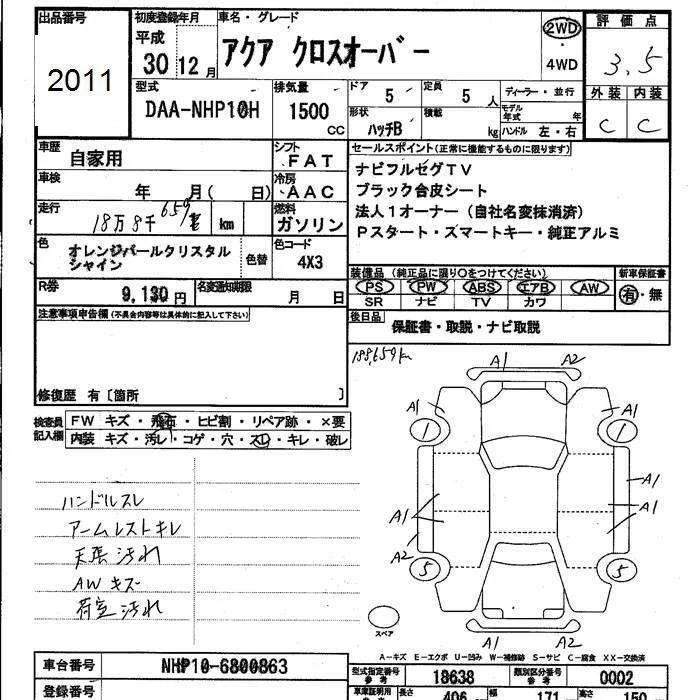 出品番号
2011
初度登録年月
平成
30 12 月
車名・グレード
アクア クロスオーバー
2WD
・
4WD
評価点
3.5
外装 内装
C C
型式
DAA-NHP10H
排気量
1500
CC
ドア 5
定員 5 人
ディーラー・並行
形状
ハッチB
積載
kg
モデル年式 年
ハンドル 左・右
車歴
自家用
シフト
FAT
車検
年 月( 日)
冷房
AAC
走行
18万8千659
km
燃料
ガソリン
色
オレンジパールクリスタル
シャイン
色替
色コード
4X3
R券
9,130 円
名変通知期限
月 日
セールスポイント(正常に機能するものに限ります)
ナビフルセグTV
ブラック合皮シート
法人1オーナー(自社名変抹消済)
Pスタート・スマートキー・純正アルミ
装備品(純正品に限り○をつけてください)
新車保証書
PS PW ABS エアB AW
SR ナビ TV カワ
有・無
後日品
保証書・取説・ナビ取説
注意事項申告欄(不具合内容等は具体的に記入して下さい)
修復歴 有〔箇所 〕
188,659km
検査員
記入欄
FW キズ・飛石・ヒビ割・リペア跡・×要
内装 キズ・汚レ・コゲ・穴・スレ・キレ・破レ
ハンドルスレ
アームレストキレ
天張汚れ
AWキズ
荷室汚れ
A1 A2
A1 A1
1 1
A1
A1 A1
A2
5 5
スペア
A1 A2
A-キズ E-エクボ U-凹み W-補修跡 S-サビ C-腐食 XX-交換済
車台番号
NHP10-6800863
型式指定番号
参考
18638
類別区分番号
参考
0002
登録番号
車庫証明用
長さ 406
幅 171
高さ 150